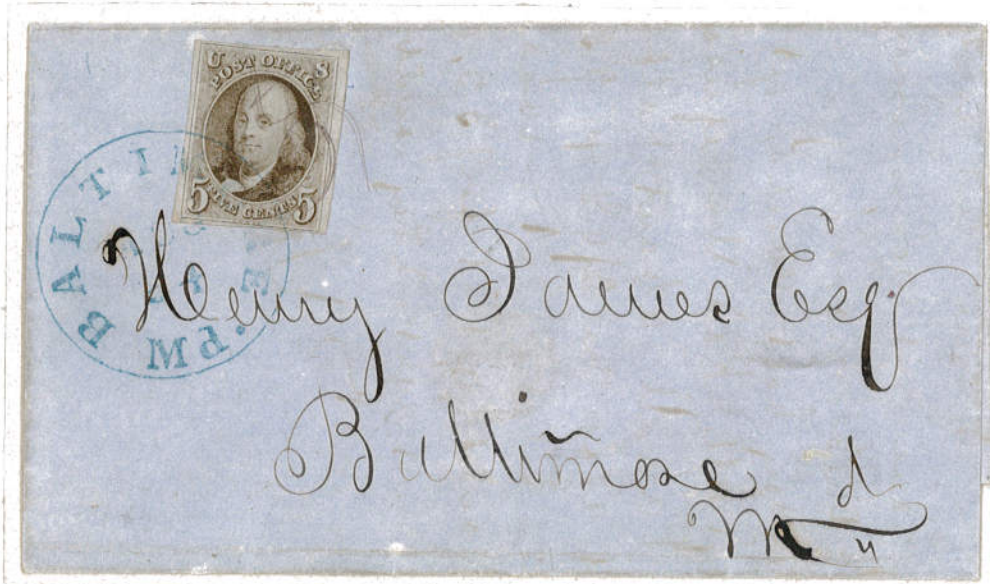 U S
POST OFFICE
5 FIVE CENTS 5
BALTIM
PM
Henry James Esq
Baltimore
Md